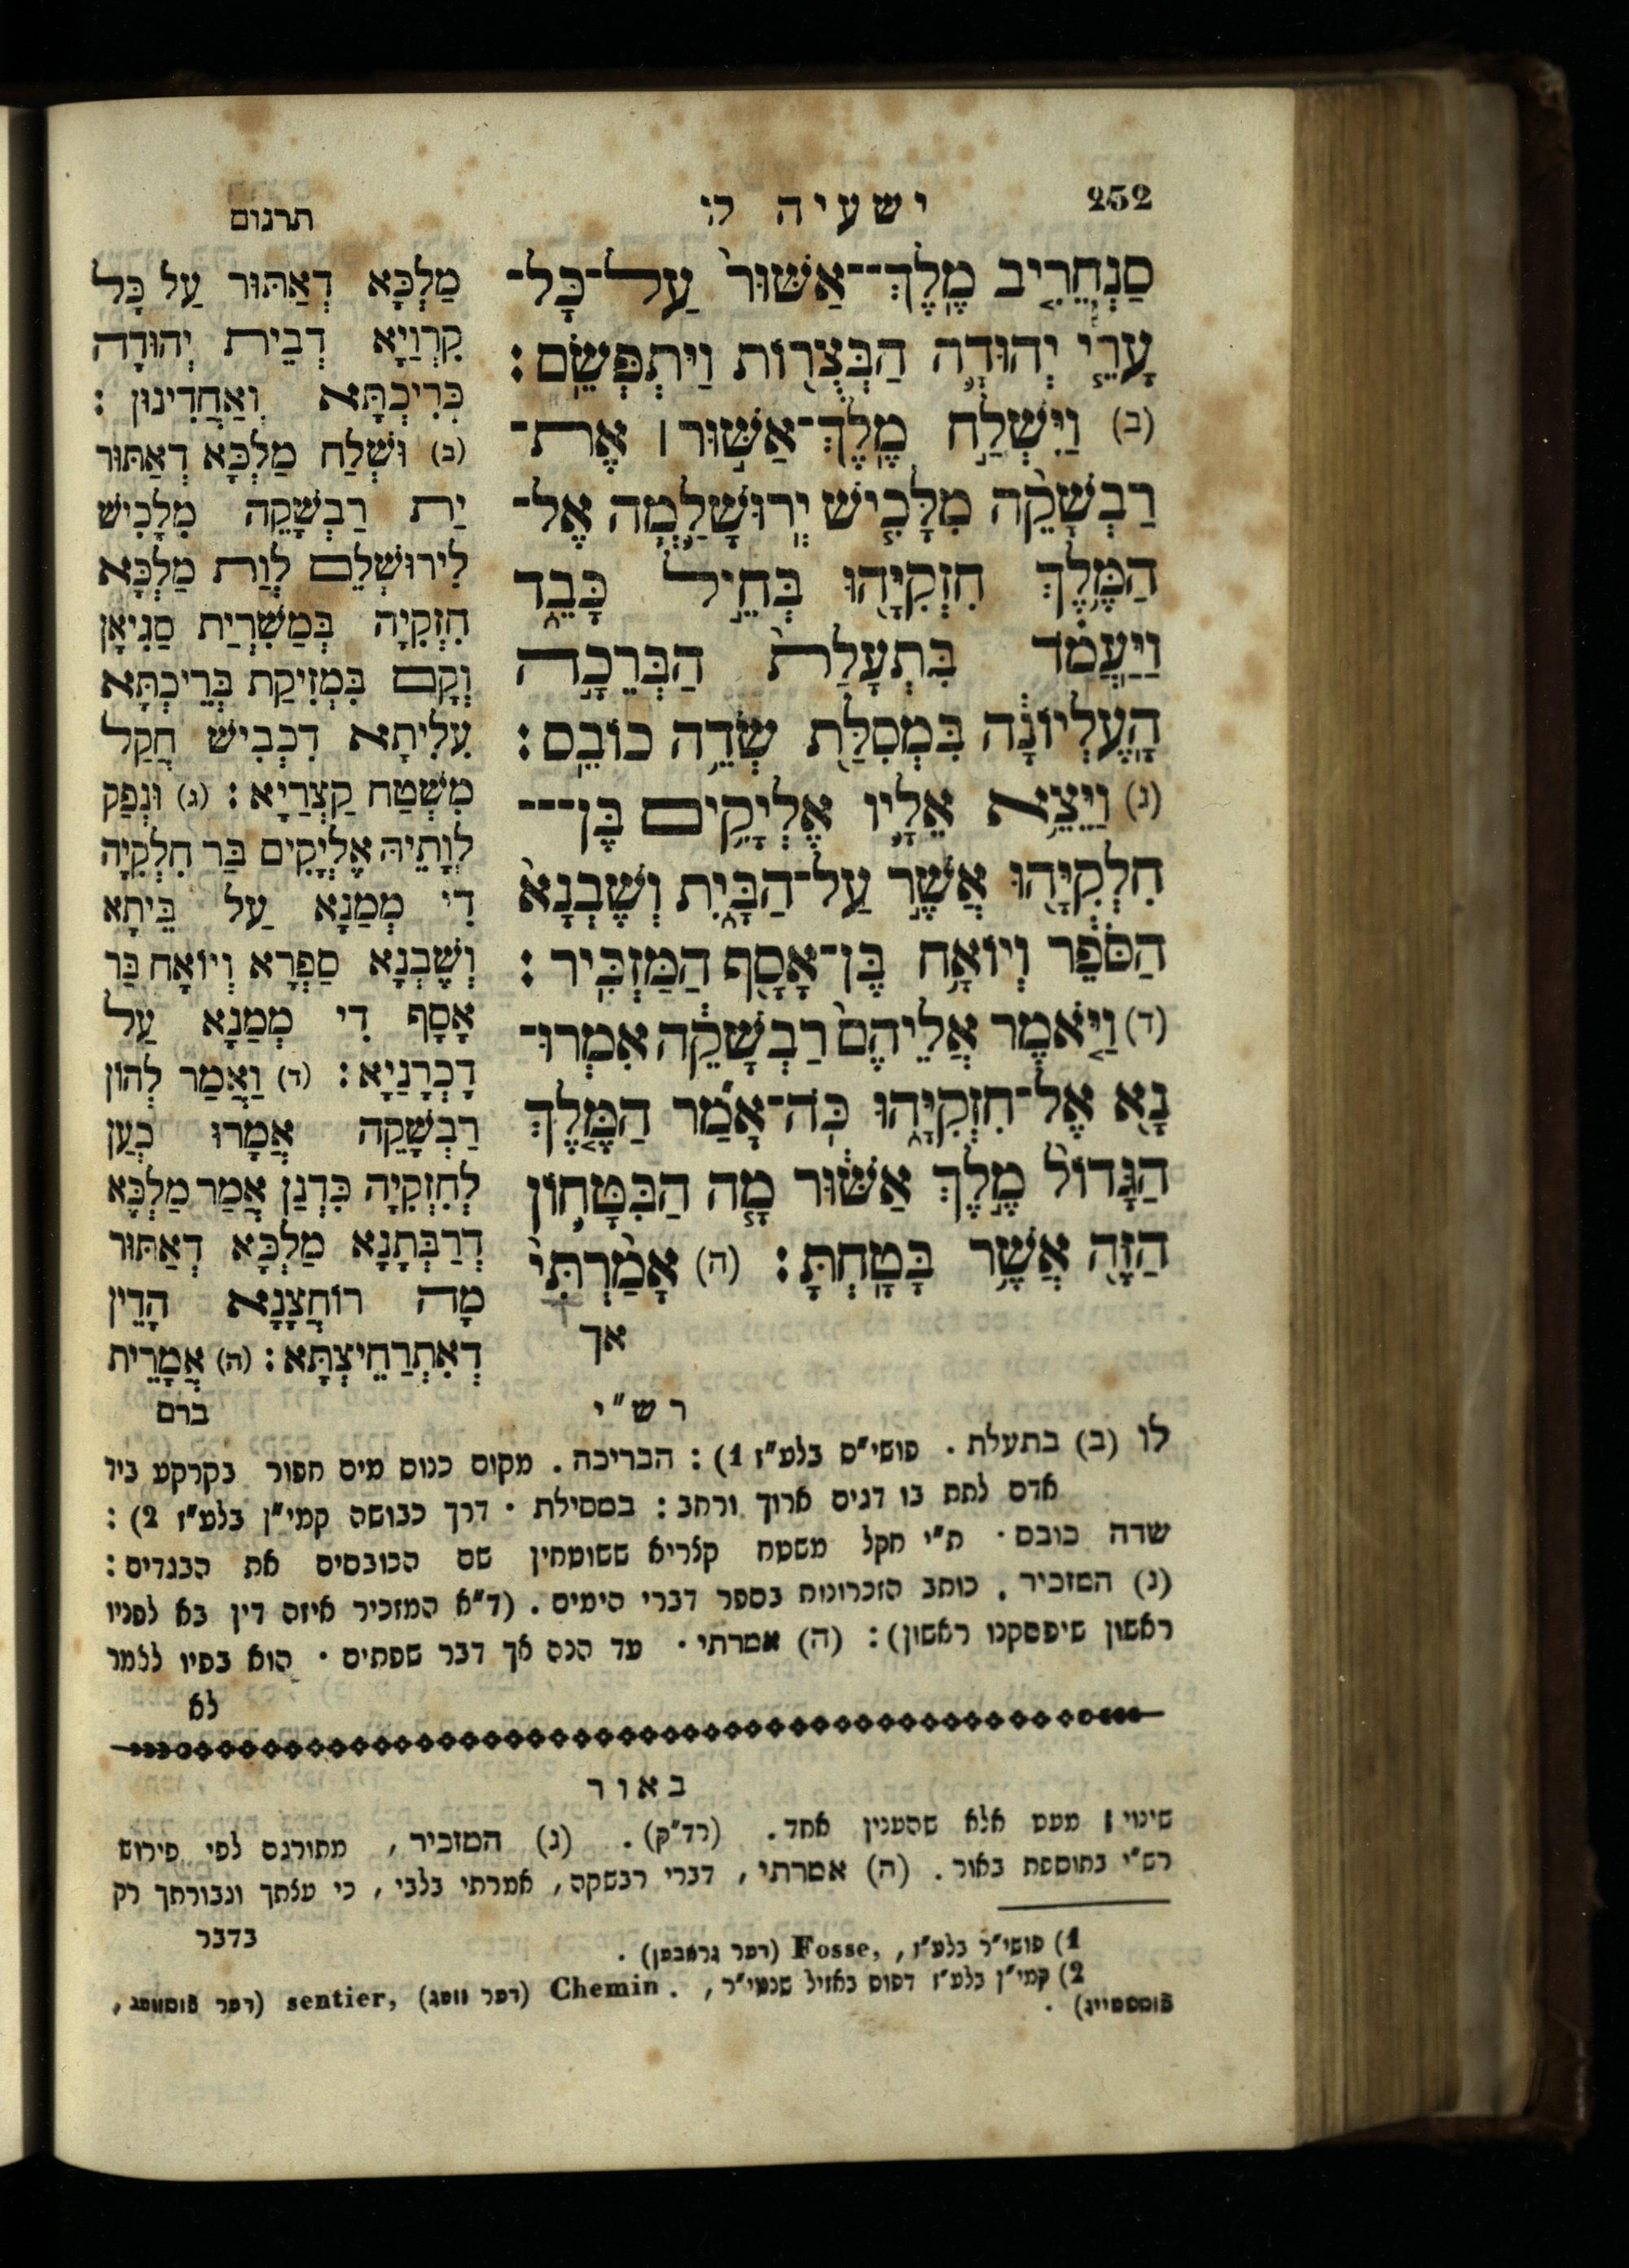 252
ישעיה לו
תרגום
סַנְחֵרִיב מֶלֶךְ־־אַשּׁוּר עַל־כָּל־
עָרֵי יְהוּדָה הַבְּצֻרוֹת וַיִּתְפְּשֵׂם׃
(ב) וַיִּשְׁלַח מֶלֶךְ־אַשּׁוּר׀ אֶת־
רַבְשָׁקֵה מִלָּכִישׁ יְרוּשָׁלַמָה אֶל־
הַמֶּלֶךְ חִזְקִיָּהוּ בְּחֵיל כָּבֵד
וַיַּעֲמֹד בִּתְעָלַת הַבְּרֵכָה
הָעֶלְיוֹנָה בִּמְסִלַּת שְׂדֵה כוֹבֵס׃
(ג) וַיֵּצֵא אֵלָיו אֶלְיָקִים בֶּן־־־
חִלְקִיָּהוּ אֲשֶׁר עַל־הַבָּיִת וְשֶׁבְנָא
הַסֹּפֵר וְיוֹאָח בֶּן־אָסָף הַמַּזְכִּיר׃
(ד) וַיֹּאמֶר אֲלֵיהֶם רַבְשָׁקֵה אִמְרוּ־
נָא אֶל־חִזְקִיָּהוּ כֹּה־אָמַר הַמֶּלֶךְ
הַגָּדוֹל מֶלֶךְ אַשּׁוּר מָה הַבִּטָּחוֹן
הַזֶּה אֲשֶׁר בָּטָחְתָּ׃ (ה) אָמַרְתִּי
אך
מַלְכָּא דְאַתּוּר עַל כָּל
קִרְוַיָא דְבֵית יְהוּדָה
כְּרִיכְתָּא וַאֲחָדִינוּן׃
(ב) וּשְׁלַח מַלְכָּא דְאַתּוּר
יַת רַבְשָׁקֵה מִלָכִישׁ
לִירוּשְׁלֵם לְוַת מַלְכָּא
חִזְקִיָה בְּמַשִׁרְיַת סַגִיאָן
וְקָם בִּמְזִיקַת בְּרֵיכְתָּא
עִלִיתָא דִכְבִישׁ חֲקַל
מִשְׁטַח קַצְרַיָא׃ (ג) וּנְפַק
לְוָתֵיהּ אֶלְיָקִים בַּר חִלְקִיָה
דִי מְמַנָא עַל בֵּיתָא
וְשֶׁבְנָא סַפְרָא וְיוֹאָח בַּר
אָסָף דִי מְמַנָא עַל
דָכְרָנַיָא׃ (ד) וַאֲמַר לְהוֹן
רַבְשָׁקֵה אֲמָרוּ כְעַן
לְחִזְקִיָה כִּדְנַן אֲמַר מַלְכָּא
דְרַבְּתָנָא מַלְכָּא דְאַתּוּר
מָה רוֹחֲצָנָא הָדֵין
דְאִתְרַחֵיצְתָּא׃ (ה) אֲמָרֵית
ברם
רש״י
לו (ב) בתעלת. פושי״ס בלע״ז 1): הבריכה. מקום כנוס מים חפור בקרקע ביד
אדם לתת בו דגים ארוך ורחב: במסילת· דרך כבושה קמי״ן בלע״ז 2):
שדה כובס· ת״י חקל משטח קצריא ששוטחין שם הכובסים את הבגדים:
(ג) המזכיר. כותב הזכרונות בספר דברי הימים. (ד״א המזכיר איזה דין בא לפניו
ראשון שיפסקנו ראשון): (ה) אמרתי· עד הנה אך דבר שפתים· הוא בפיו ללמר
לא
באור
שינוי מעט אלא שהענין אחד. (רד״ק). (ג) המזכיר, מתורגם לפי פירוש
רש״י בתוספת באור. (ה) אמרתי, דברי רבשקה, אמרתי בלבי, כי עצתך וגבורתך רק
בדבר
1) פושי״ר בלע״ז, Fosse, (דער גראבען).
2) קמי״ן בלע״ז דפוס באזיל שנטי״ר, . Chemin (דער וועג) sentier, (דער פוסוועג,
פוססטייג).